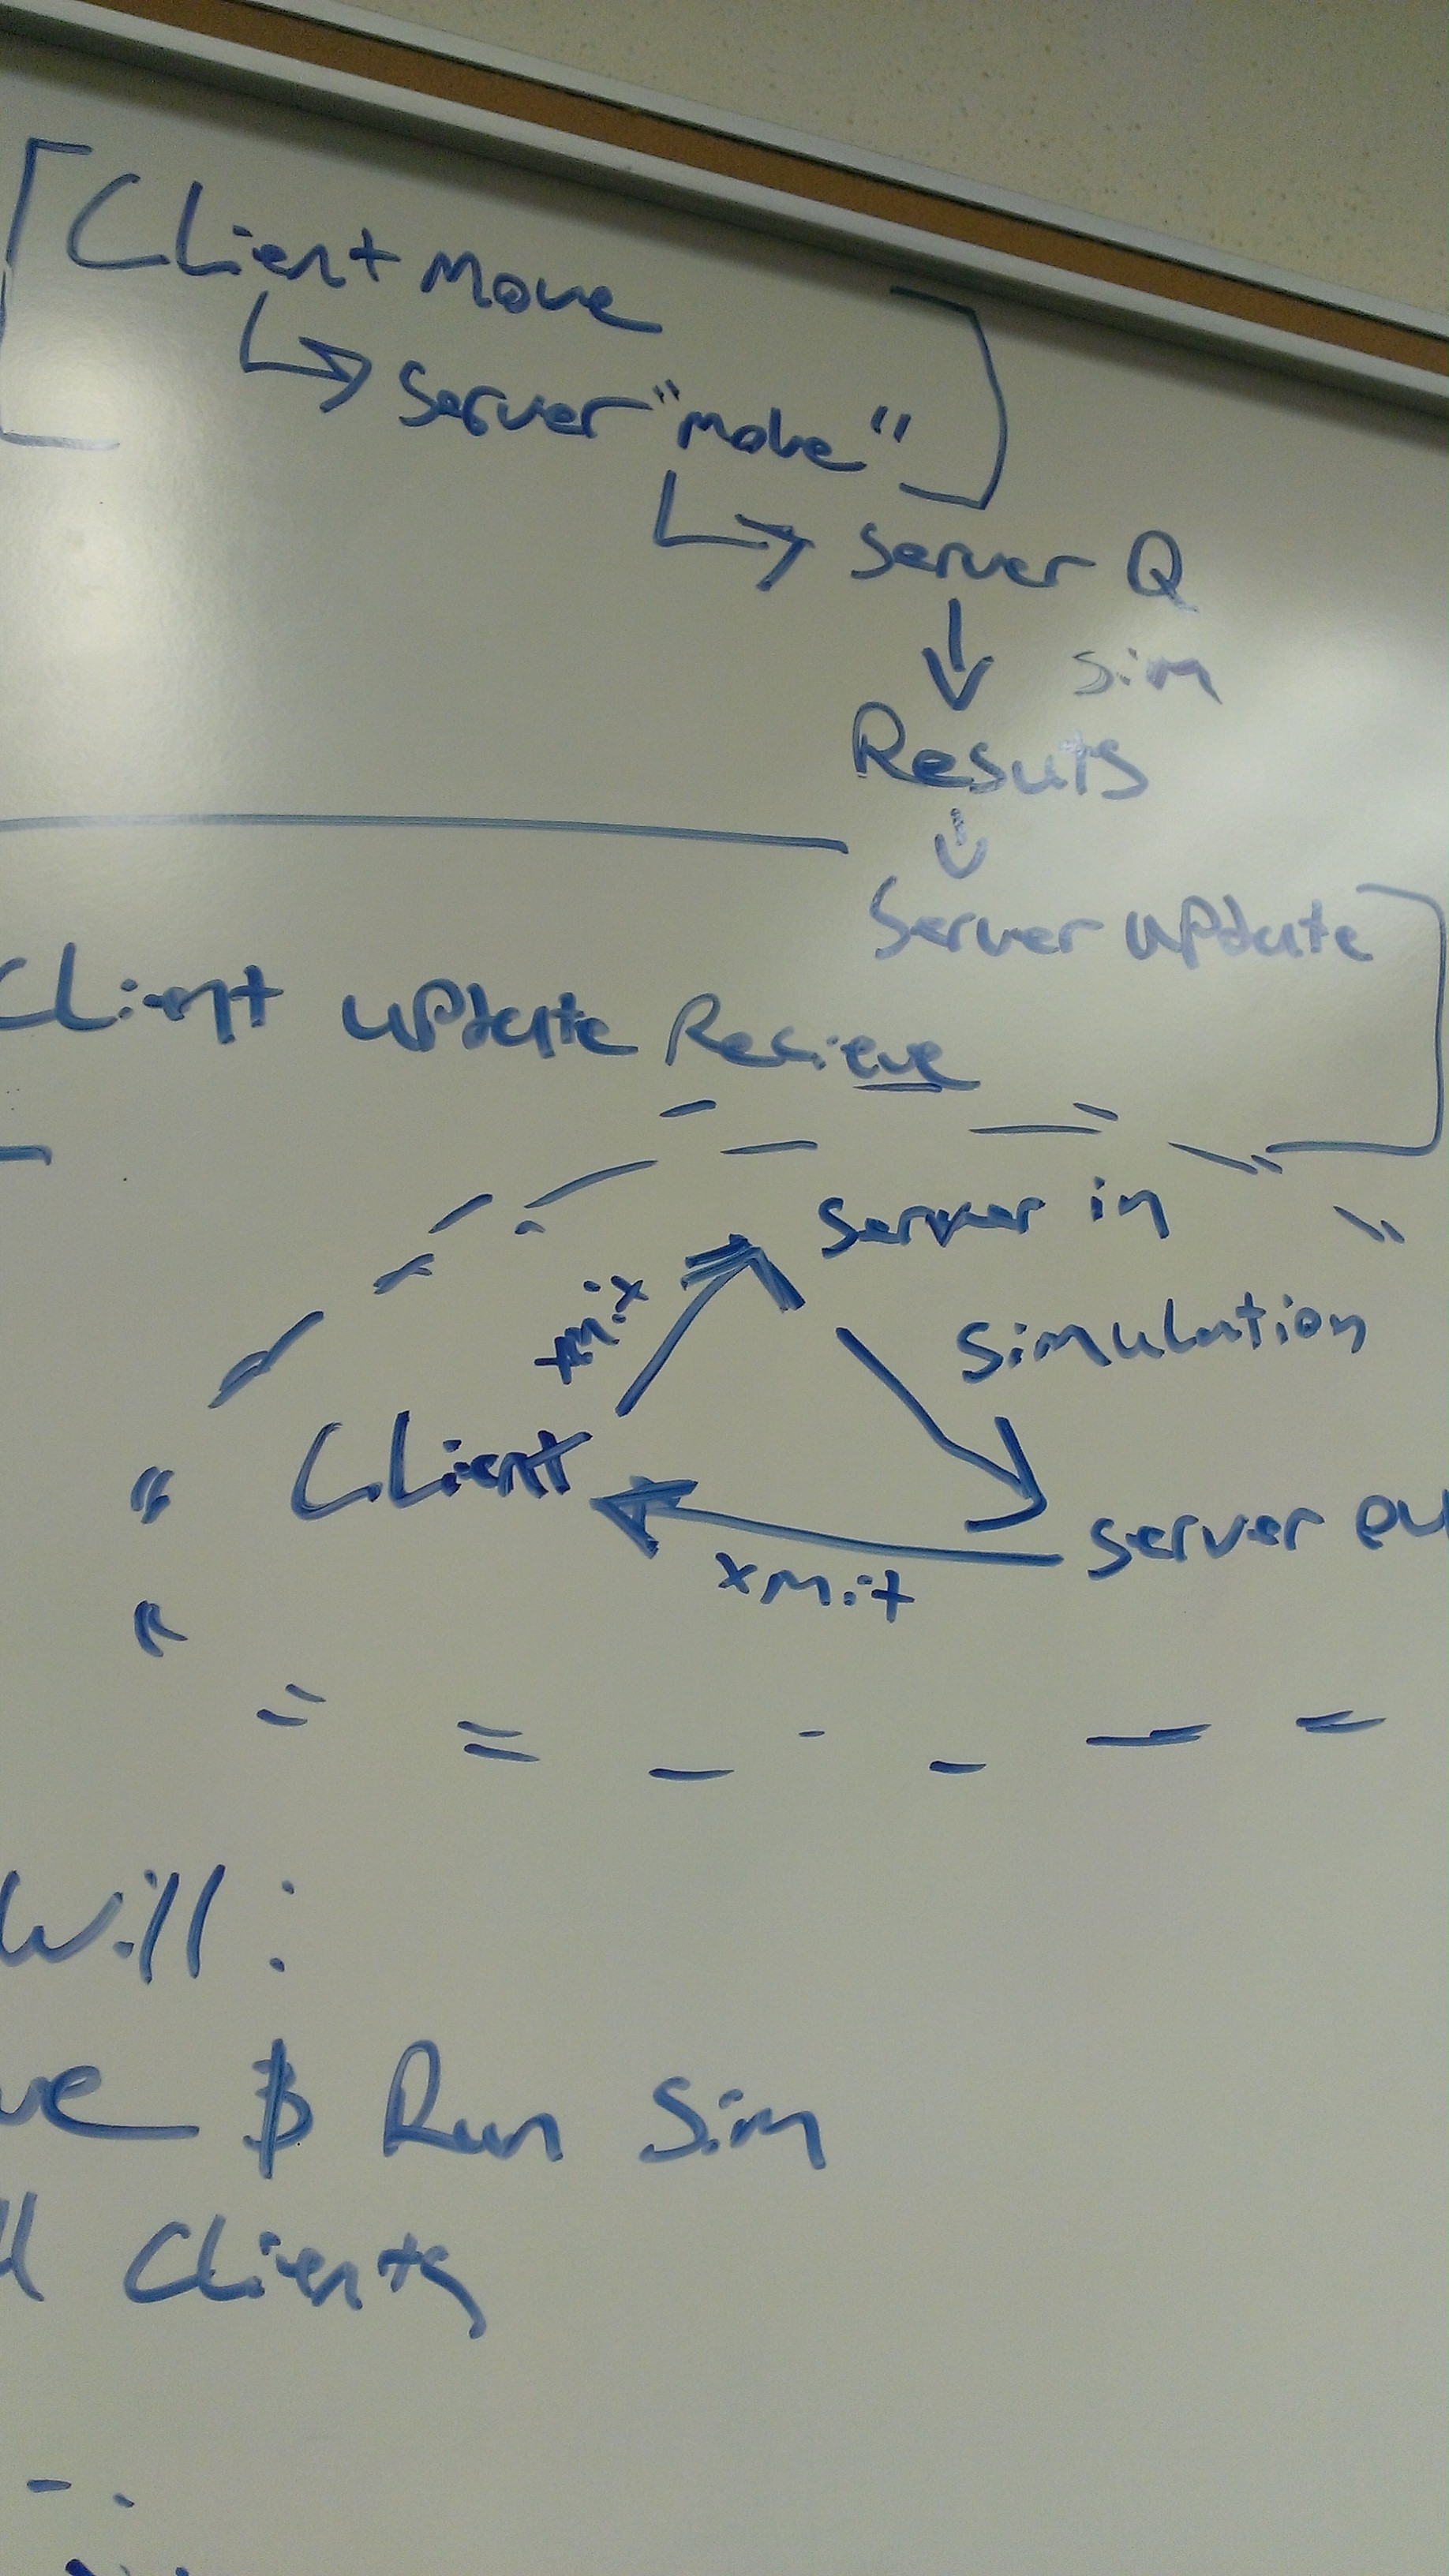 Client Move
Server "move"
Server Q
Sim
Resuts
Server update
Client update Recieve
Server in
xmit
Simulation
Client
Server
xmit
Will:
Run Sim
Clients